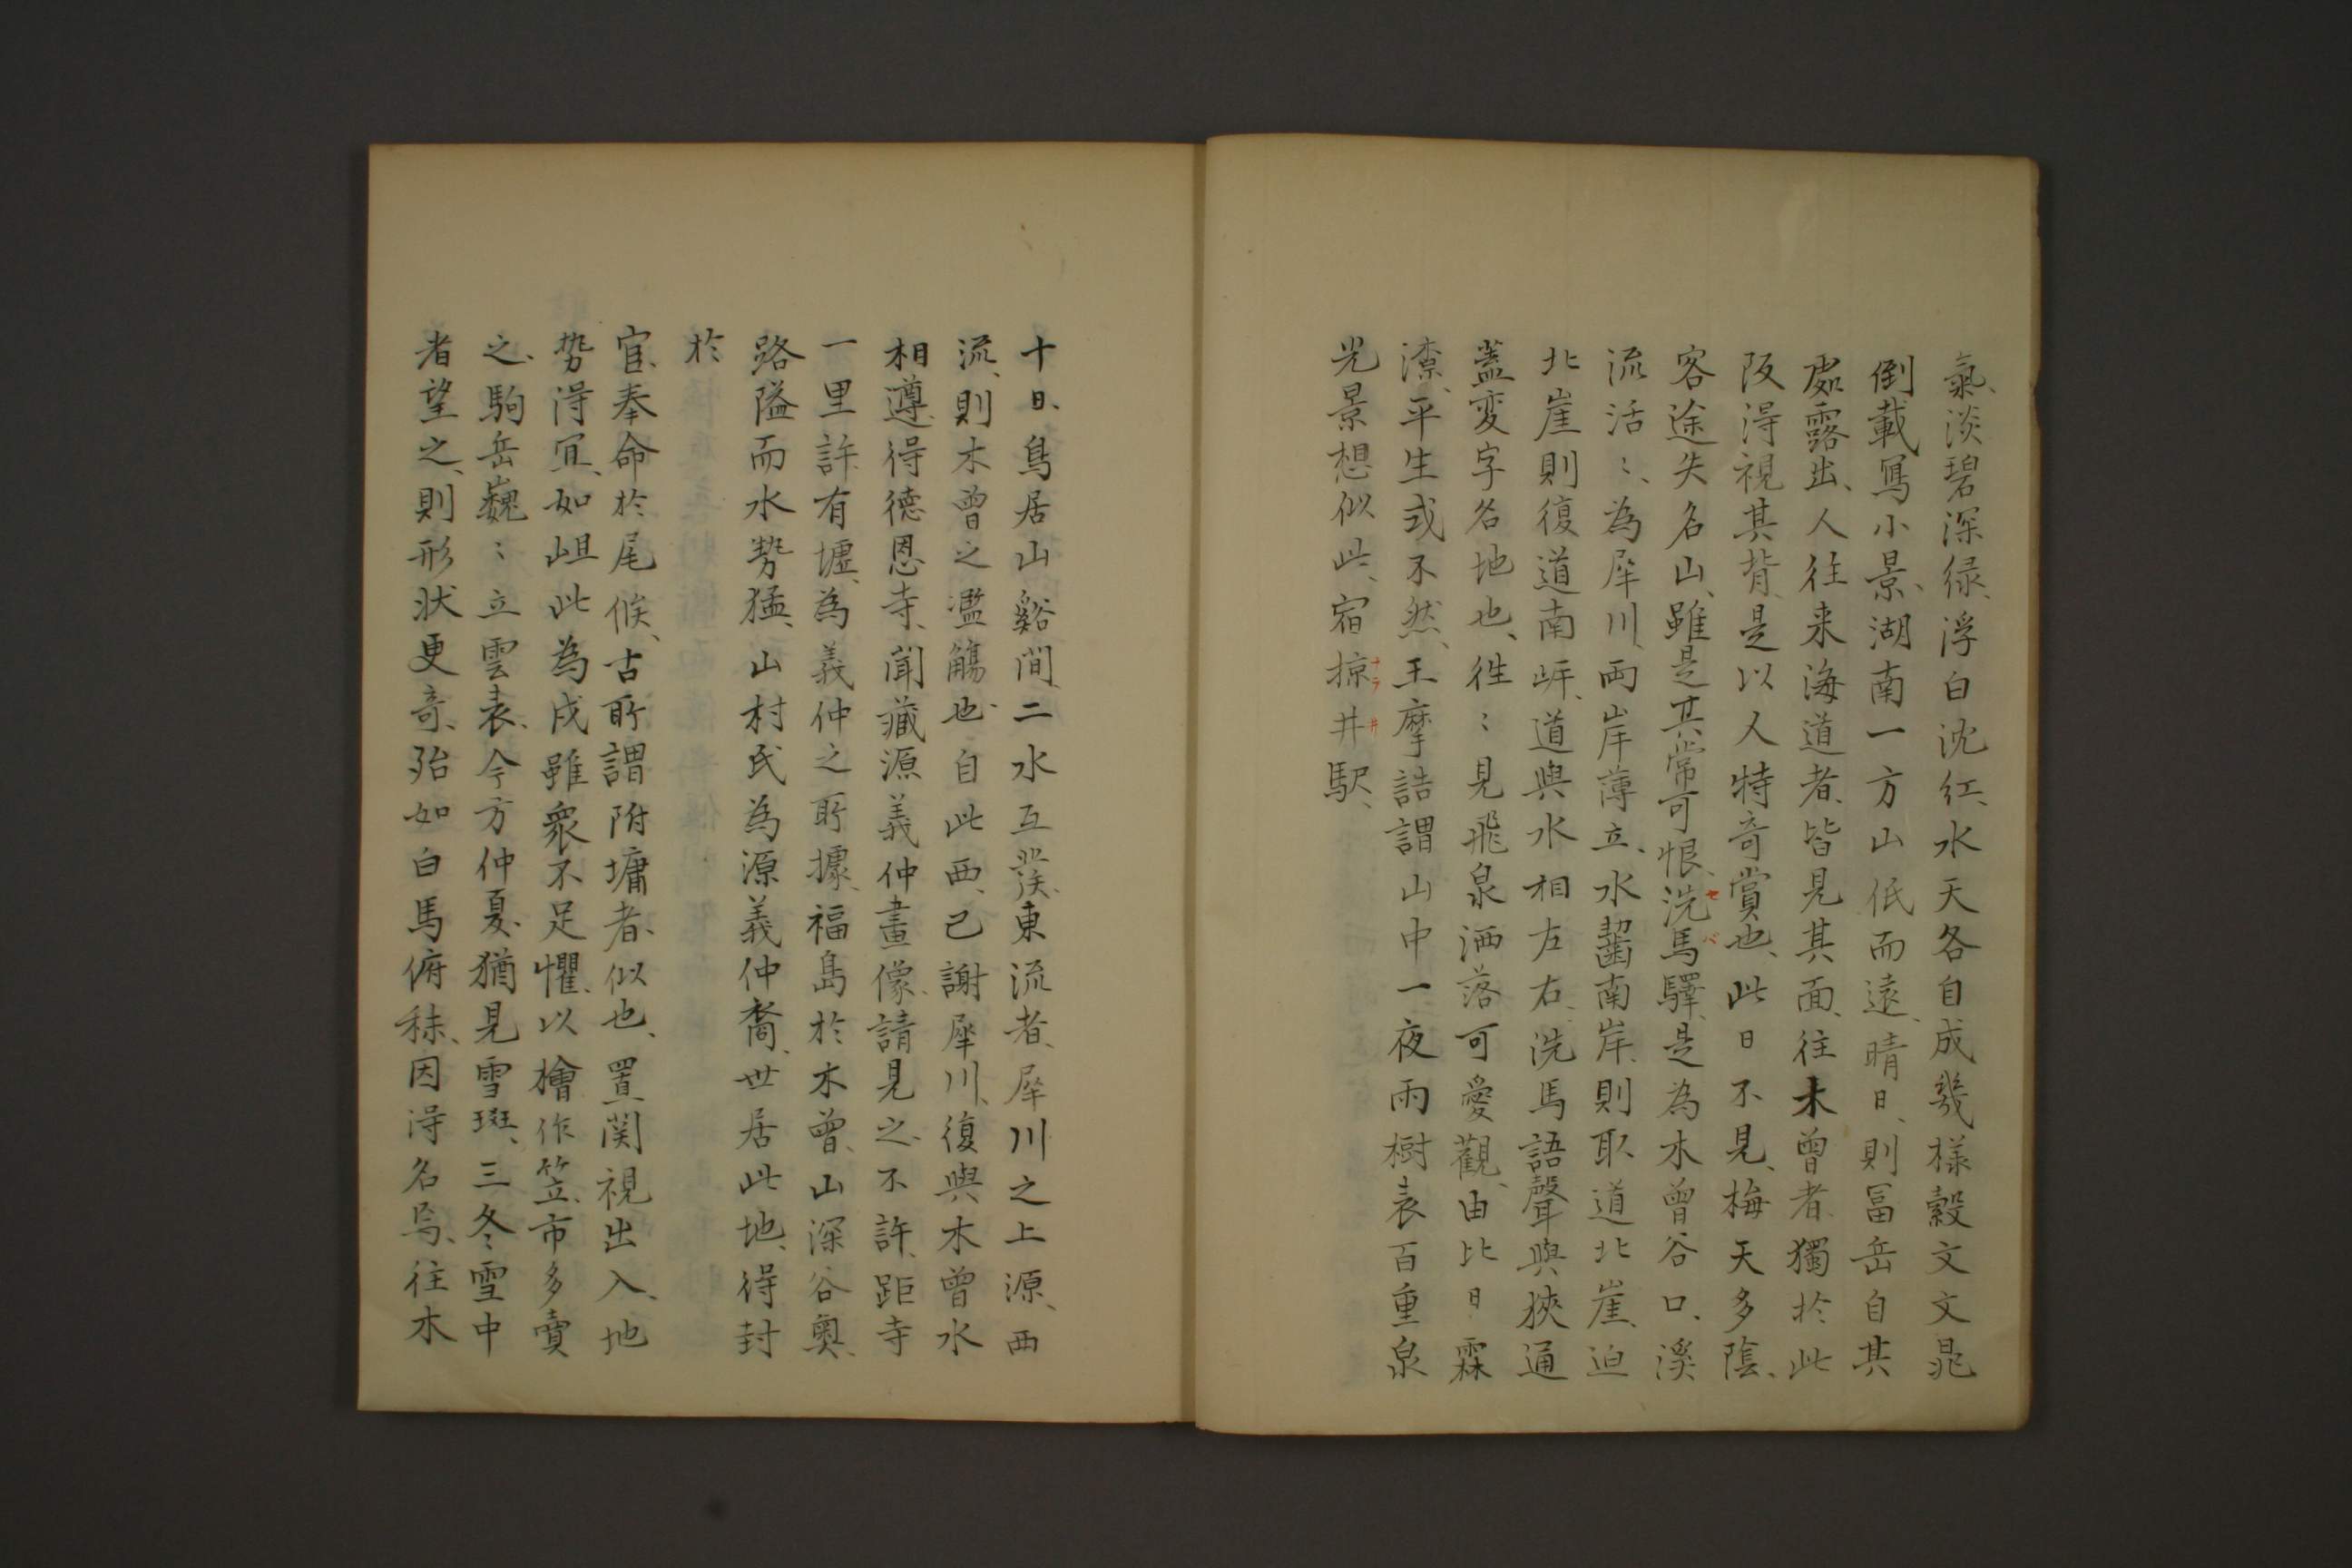 氣、淡碧深緑、浮白沈紅、水天各自成幾様縠文、文晁
倒載寫小景、湖南一方山低而遠、晴日、則冨岳自其
處露出、人往来海道者、皆見其面、往木曾者、獨於此
阪淂視其背、是以人特竒賞也、此日不見、梅天多陰、
客途失名山、雖是其常可恨、洗馬驛、是為木曾谷口、溪
セバ
流活〻、為犀川、兩岸薄立、水齧南岸、則取道北崖、迫
北崖則復道南岍、道與水相左右、洗馬語聲與狹通
蓋変字名地也、徃〻見飛泉洒落可愛觀、由比日霖
潦、平生或不然、王摩詰謂山中一夜雨樹表百重泉
光景想似此、宿掠井駅、
ナラ井
十日、鳥居山谿間、二水互發、東流者、犀川之上源、西
流、則木曾之濫觴也、自此西、己謝犀川、復與木曾水
相遵、得徳恩寺、聞藏源義仲畫像、請見之、不許、距寺
一里許、有墟、為義仲之所據、福島於木曾、山深谷奥、
路隘而水勢猛、山村民為源義仲裔、世居此地、得封
於
官、奉命於尾候、古所謂附墉者、似也、置関視出入、地
勢淂冝、如岨此為戍雖衆不足懼、以檜作笠、市多賣
之、駒岳巍〻立雲表、今方仲夏、猶見雪斑、三冬雪中
者望之、則形状更竒、殆如白馬俯秣、因淂名焉、往木